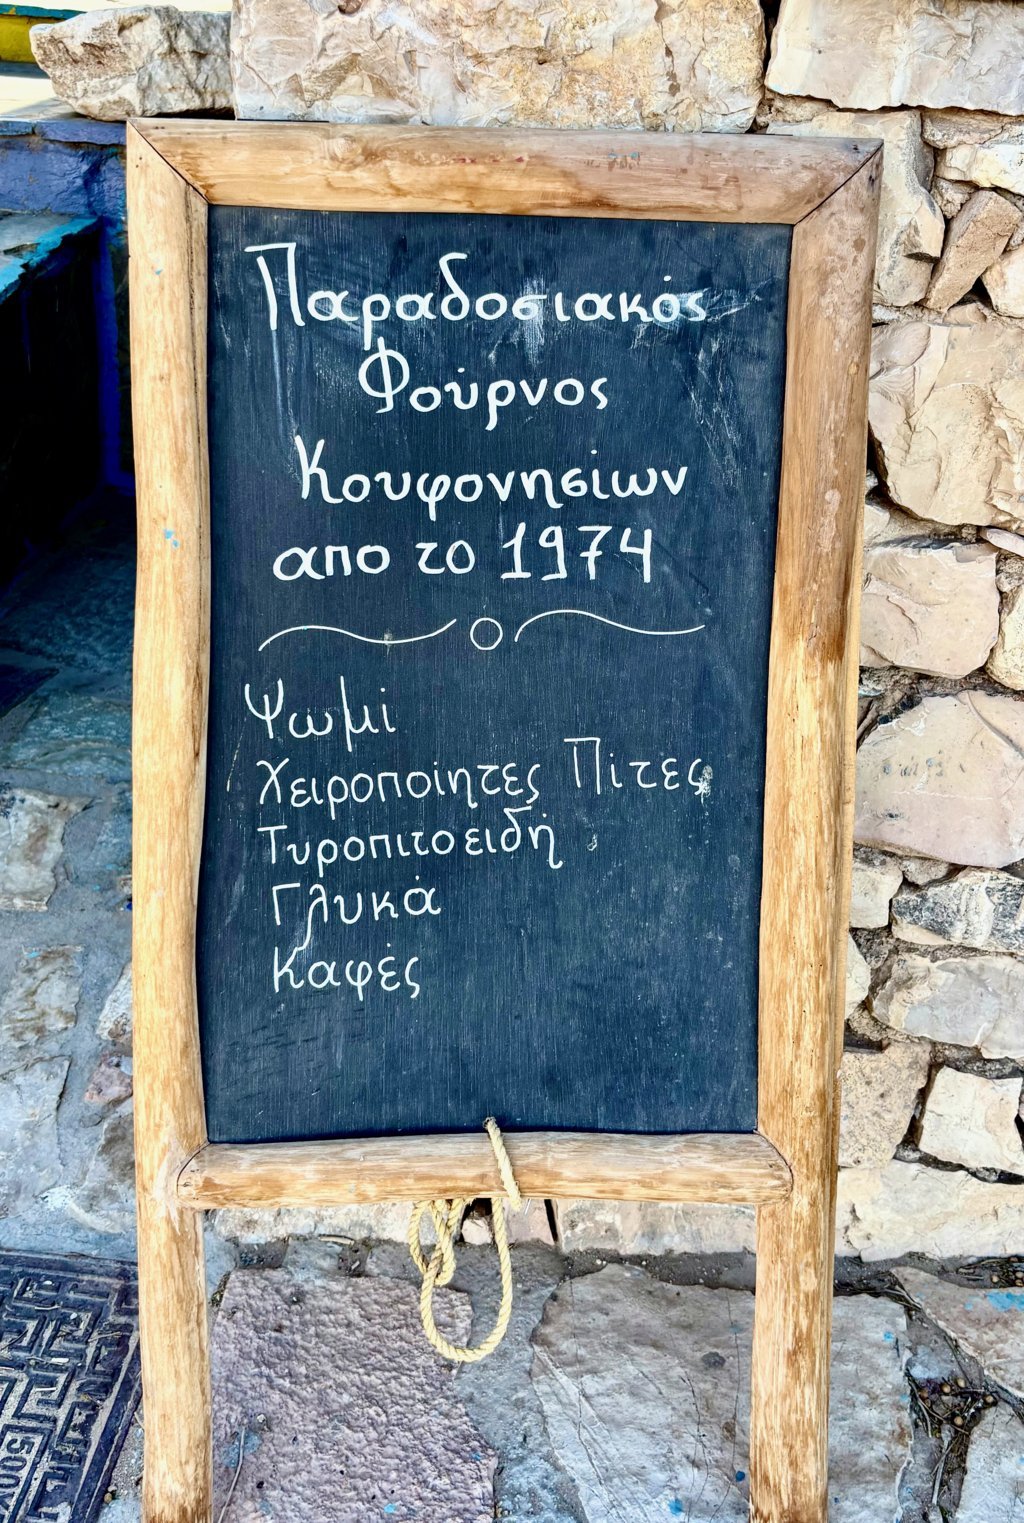 Παραδοσιακός
Φούρνος
Κουφονησίων
απο το 1974
Ψωμί
Χειροποίητες Πίτες
Τυροπιτοειδή
Γλυκά
Καφές
500Y